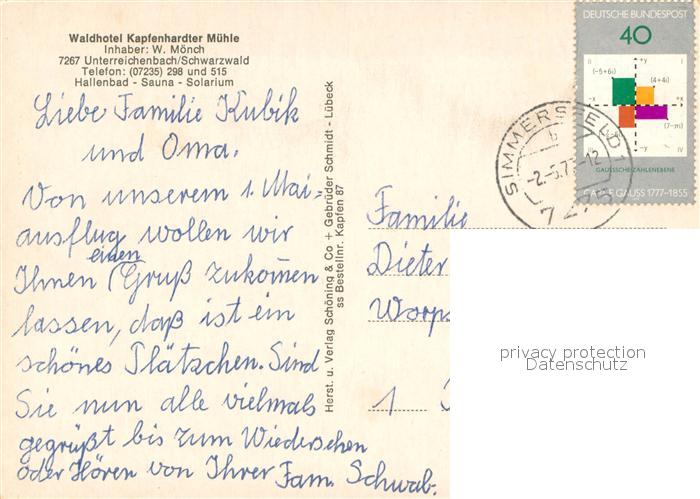 Waldhotel Kapfenhardter Mühle
Inhaber: W. Mönch
7267 Unterreichenbach/Schwarzwald
Telefon: (07235) 298 und 515
Hallenbad - Sauna - Solarium
Liebe Familie Kubik
und Oma.
Von unserem 1. Mai=
ausflug wollen wir
einen
Ihnen (Gruß zukom̄en
lassen, daß ist ein
schönes Plätzchen. Sind
Sie nun alle vielmals
gegrüßt bis zum Wiedersehen
oder Hören von Ihrer Fam. Schwab.
Herst. u. Verlag Schöning & Co + Gebrüder Schmidt - Lübeck
ss Bestellnr. Kapfen 87
DEUTSCHE BUNDESPOST
40
II +y I
(-5+6i)
(4+4i)
-x +x
(7-πi)
III -y IV
GAUSSSCHE ZAHLENEBENE
CARL F. GAUSS 1777-1855
SIMMERSFELD 1
b
-2.-5.77-12
7275
Familie
Dieter
Worps
1
privacy protection
Datenschutz